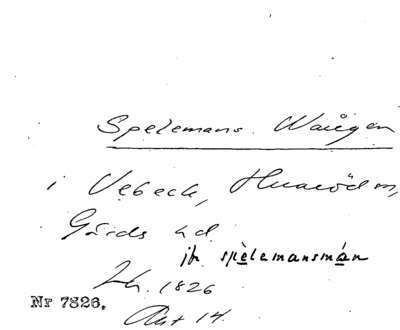 Spelemans Waÿgen
i Vebeck, Huaröd sn,
Gärds hd
jfr spèlemansmán
Lh. 1826
Akt 14.
Nr 7826.